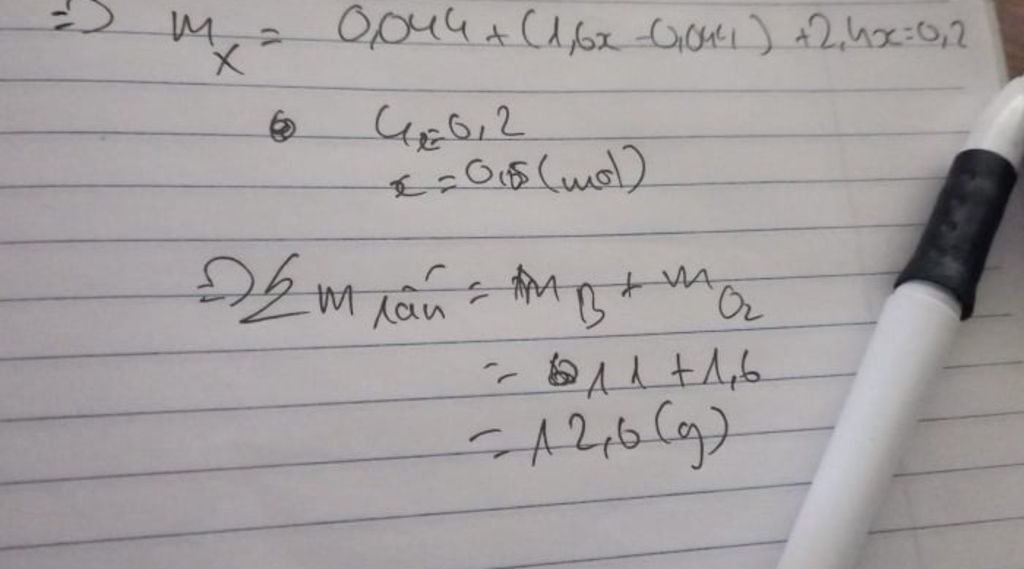 => m_X = 0,044 + (1,6x - 0,044) + 2,4x = 0,2
4x = 0,2
x = 0,05 (mol)
=> ∑ m rắn = m_B + m_O2
= 11 + 1,6
= 12,6 (g)